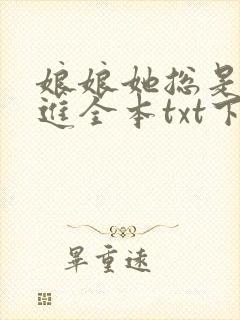 娘娘她总是
进全本txt下
毕重远